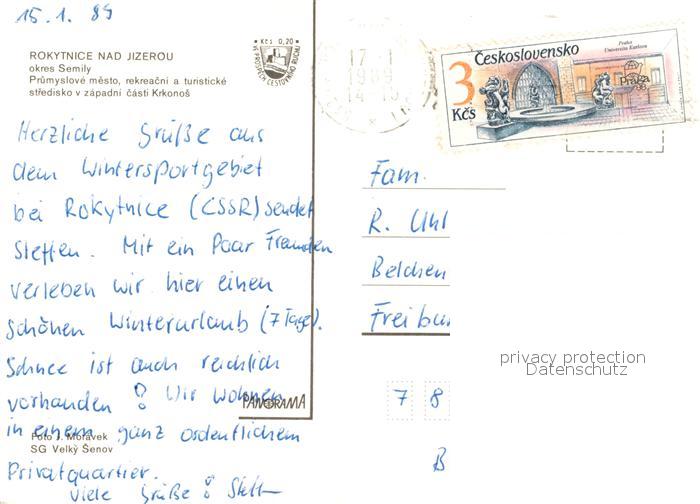 15.1.89
ROKYTNICE NAD JIZEROU
okres Semily
Průmyslové město, rekreační a turistické
středisko v západní části Krkonoš
Kčs 0,20
VE PROSPĚCH CESTOVNÍHO RUCHU
Herzliche Grüße aus
dem Wintersportgebiet
bei Rokytnice (CSSR) sendet
Steffen. Mit ein Paar Freunden
verleben wir hier einen
schönen Winterurlaub (7 Tage).
Schnee ist auch reichlich
vorhanden! Wir wohnen
in einem ganz ordentlichem
Privatquartier.
Viele Grüße! Steff
PANORAMA
Foto J. Morávek
SG Velký Šenov
17.1
14-15
Československo
3
Kčs
Praha
Univerzita Karlova
Praha
Fam.
R. Uhl
Belchen
Freibu
privacy protection
Datenschutz
7 8
B